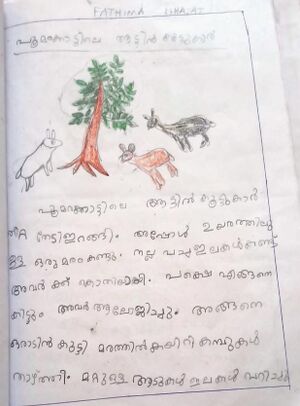 FATHIMA
പൂമരക്കാട്ടിലെ ആട്ടിൻ കൂട്ടുകാർ
പൂമരക്കാട്ടിലെ ആട്ടിൻ കൂട്ടുകാർ
തീറ്റ തേടിഇറങ്ങി. അപ്പോൾ ഉയരത്തിലു
ള്ള ഒരുമരം കണ്ടു. നല്ല പച്ച ഇലകൾകണ്ട്
അവർക്ക് കൊതിയായി. പക്ഷെ എങ്ങനെ
കിട്ടും അവർ ആലോജിച്ചു. അങ്ങനെ
ഒരാട്ടിൻ കുട്ടി മരത്തിൽകയറി കമ്പുകൾ
താഴ്ത്തി. മറ്റുള്ള ആടുകൾ ഇലകൾ പറിച്ചു